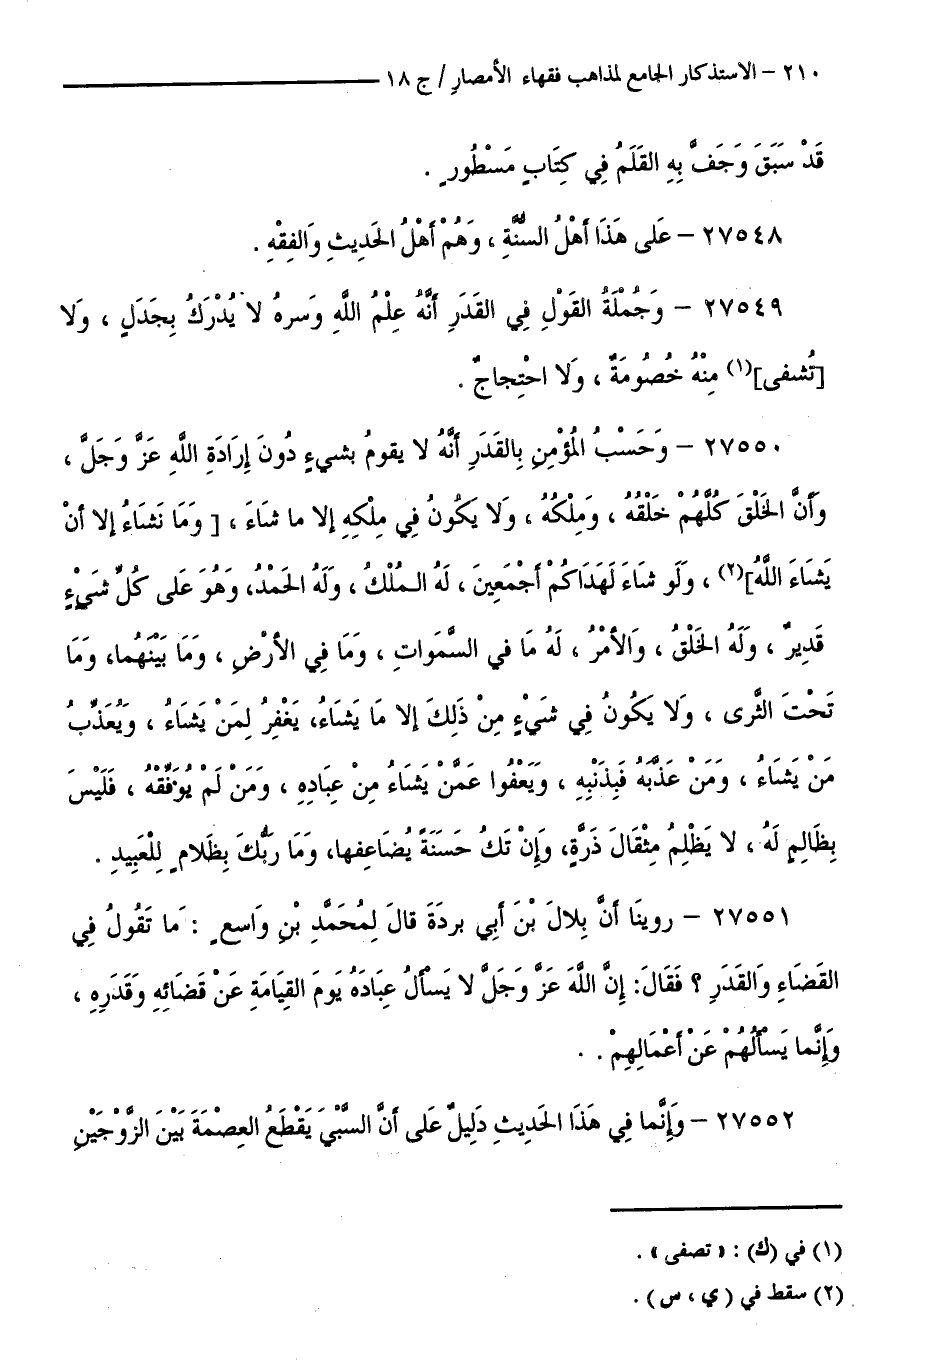 ٢١٠ – الاستذكار الجامع لمذاهب فقهاء الأمصارِ / ج ١٨
قَدْ سَبَقَ وَجَفَّ بِهِ القَلَمُ فِي كِتَابٍ مَسْطُورٍ .
٢٧٥٤٨ – عَلى هَذَا أَهْلُ السُّنَّةِ ، وَهُمْ أَهْلُ الحَدِيثِ وَالفِقْهِ .
٢٧٥٤٩ – وَجُمْلَةُ القَوْلِ فِي القَدَرِ أَنَّهُ عِلْمُ اللَّهِ وَسرهُ لا يُدْرَكُ بِجَدَلٍ ، وَلا
[تُشفى](١) مِنْهُ خُصُومَةٌ ، وَلا احْتِجاجٌ .
٢٧٥٥٠ – وَحَسْبُ المُؤْمِنِ بِالقَدَرِ أَنَّهُ لا يقومُ بشيءٍ دُونَ إِرَادَةِ اللَّهِ عَزَّ وَجَلَّ ،
وَأَنَّ الخَلْقَ كُلَّهُمْ خَلْقُهُ ، وَمِلْكُهُ ، وَلا يَكُونُ فِي مِلْكِهِ إلا ما شاءَ ، [ وَمَا نَشَاءُ إلا أنْ
يَشَاءَ اللَّهُ](٢) ، وَلَو شاءَ لَهَدَاكُمْ أجْمَعِينَ ، لَهُ المُلْكُ ، وَلَهُ الحَمْدُ، وَهُوَ عَلى كُلِّ شَيْءٍ
قَدِيرٌ ، وَلَهُ الخَلْقُ ، وَالأمْرُ ، لَهُ مَا في السَّمَواتِ ، وَمَا فِي الأرْضِ ، وَمَا بَيْنَهُما، وَمَا
تَحْتَ الثَّرى ، وَلا يَكُونُ فِي شَيْءٍ مِنْ ذَلِكَ إلا مَا يَشَاءُ، يَغْفِرُ لِمَنْ يَشَاءُ ، وَيُعَذِّبُ
مَنْ يَشَاءُ ، وَمَنْ عَذَّبَهُ فَبِذَنْبِهِ ، وَيَعْفُوا عَمَّنْ يَشَاءُ مِنْ عِبَادِهِ ، وَمَنْ لَمْ يُوَفِّقْهُ ، فَلَيْسَ
بِظَالِمٍ لَهُ ، لا يَظْلِمُ مِثْقَالَ ذَرَّةٍ، وَإِنْ تَكُ حَسَنَةً يُضَاعِفها، وَمَا رَبُّكَ بِظَلامٍ لِلْعَبِيدِ .
٢٧٥٥١ – روينَا أنَّ بِلالَ بْنَ أبِي بردَةَ قالَ لِمُحَمَّدِ بْنِ وَاسعٍ : مَا تَقُولُ فِي
القَضَاءِ وَالقَدَرِ ؟ فَقَالَ: إِنَّ اللَّهَ عَزَّ وَجَلَّ لا يَسْألُ عِبَادَهُ يَومَ القِيَامَةِ عَنْ قَضَائِهِ وَقَدَرِهِ ،
وَإِنَّما يَسْألُهُمْ عَنْ أعْمَالِهِمْ . .
٢٧٥٥٢ – وَإِنَّما فِي هَذَا الحَدِيثِ دَلِيلٌ عَلى أنَّ السَّبْيَ يَقْطَعُ العِصْمَةَ بَيْنَ الزَّوْجَيْنِ
(١) في (ك) : « تصفى » .
(٢) سقط في ( ي ، س ) .